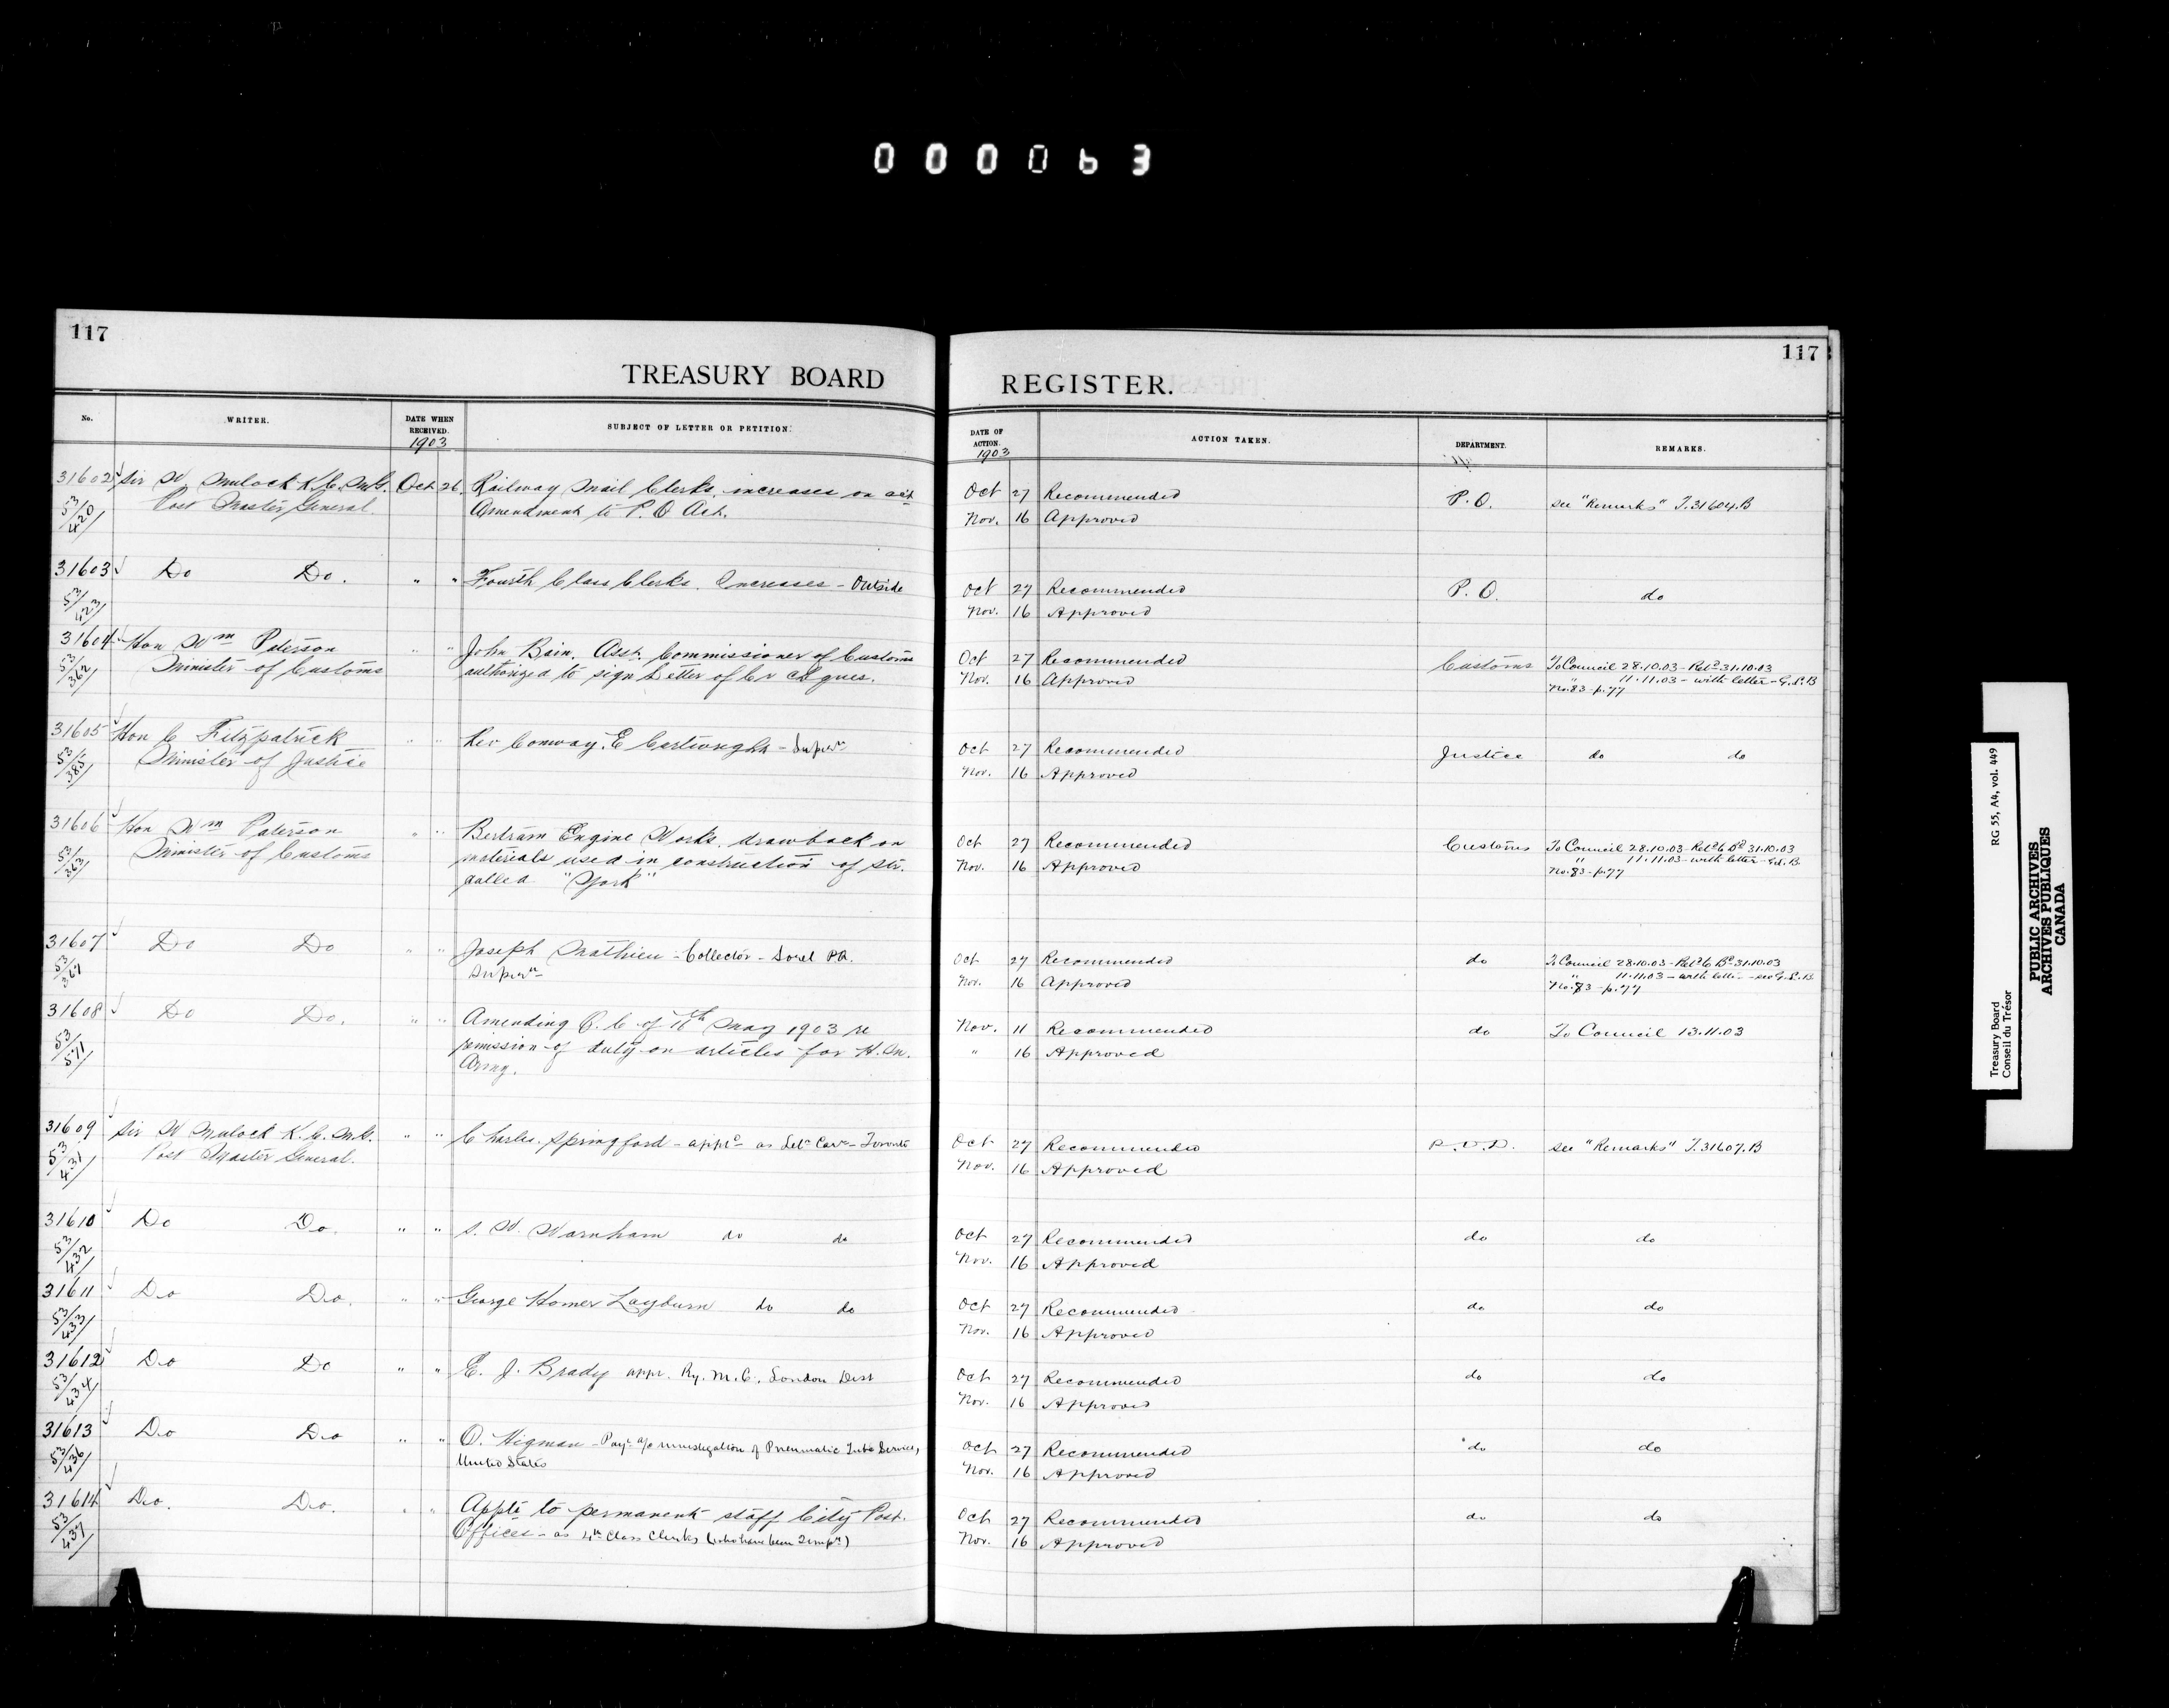 000063
117
TREASURY BOARD
No.
WRITER.
DATE WHEN RECEIVED.
1903
SUBJECT OF LETTER OR PETITION.
31602 Sir W. Mulock K.C.M.G. Oct 26 Railway Mail Clerks, increases on
53/420 Post Master General. Amendment to P.O Act.
31603 Do Do. " " Fourth Class Clerks. Increases - Outside
53/423
31604 Hon Wm Paterson " " John Bain. Asst. Commissioner of Customs
53/362 Minister of Customs authorized to sign Letter of Cr cheques.
31605 Hon C Fitzpatrick " " Rev Conway. E Cartwright - Supern
53/385 Minister of Justice
31606 Hon Wm Paterson " " Bertram Engine Works, drawback on
53/363 Minister of Customs materials used in construction of str.
called "York"
31607 Do Do " " Joseph Mathieu - Collector - Sorel PQ.
53/367 Supern
31608 Do Do. " " Amending O.C. of 11th May 1903 re
53/571 remission of duty on articles for H.M.
Army.
31609 Sir W Mulock K.C.M.G. " " Charles Springford - apptd as Letr Carr - Toronto
53/431 Post Master General.
31610 Do Do. " " S. W. Warnham do do
53/432
31611 Do Do. " " George Homer Layburn do do
53/433
31612 Do Do " " E. J. Brady appt. Ry. M.C., London Dist
53/434
31613 Do Do " " O. Higman - Payt a/c investigation of Pneumatic Tube Service,
53/436 United States
31614 Do. Do. " " Appts to permanent staff City Post
53/437 Offices - as 4th Class Clerks (who have been Tempy)
117
REGISTER.
DATE OF ACTION.
1903
ACTION TAKEN.
DEPARTMENT.
REMARKS.
Oct 27 Recommended P.O. see "Remarks" T.31604.B
Nov. 16 Approved
Oct 27 Recommended P.O. do
Nov. 16 Approved
Oct 27 Recommended Customs To Council 28.10.03 - Retd 31.10.03
Nov. 16 Approved " 11.11.03 - with letter - G.L.B
No.83-p.77
Oct 27 Recommended Justice do do
Nov. 16 Approved
Oct 27 Recommended Customs To Council 28.10.03 - Retd to Bd 31.10.03
Nov. 16 Approved " 11.11.03 - with letter - G.L.B
No.83-p.77
Oct 27 Recommended do To Council 28.10.03 - Retd to Bd 31.10.03
Nov. 16 Approved " 11.11.03 - with letter - see G.L.B
No.83-p.77
Nov. 11 Recommended do To Council 13.11.03
" 16 Approved
Oct 27 Recommended P.O.D. see "Remarks" T.31607.B
Nov. 16 Approved
Oct 27 Recommended do do
Nov. 16 Approved
Oct 27 Recommended do do
Nov. 16 Approved
Oct 27 Recommended do do
Nov. 16 Approved
Oct 27 Recommended do do
Nov. 16 Approved
Oct 27 Recommended do do
Nov. 16 Approved
Treasury Board RG 55, A4, vol. 449
Conseil du Trésor
PUBLIC ARCHIVES
ARCHIVES PUBLIQUES
CANADA